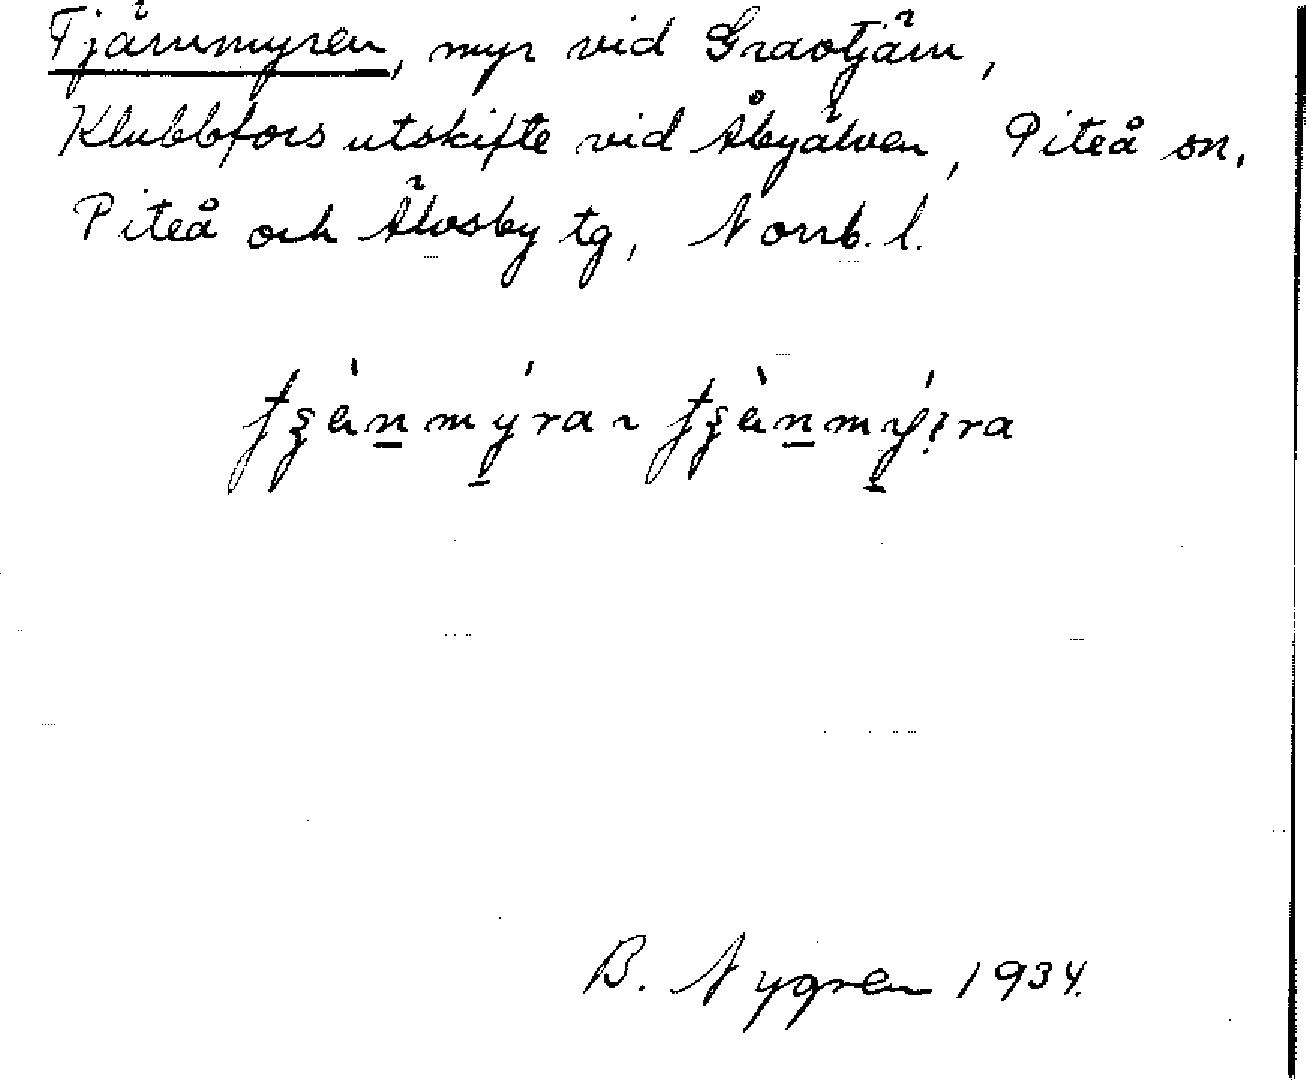 Tjärnmyren, myr vid Gravtjärn,
Klubbfors utskifte vid Åbyälven, Piteå sn,
Piteå och Älvsby tg, Norrb. l.
B. Nygren 1934.